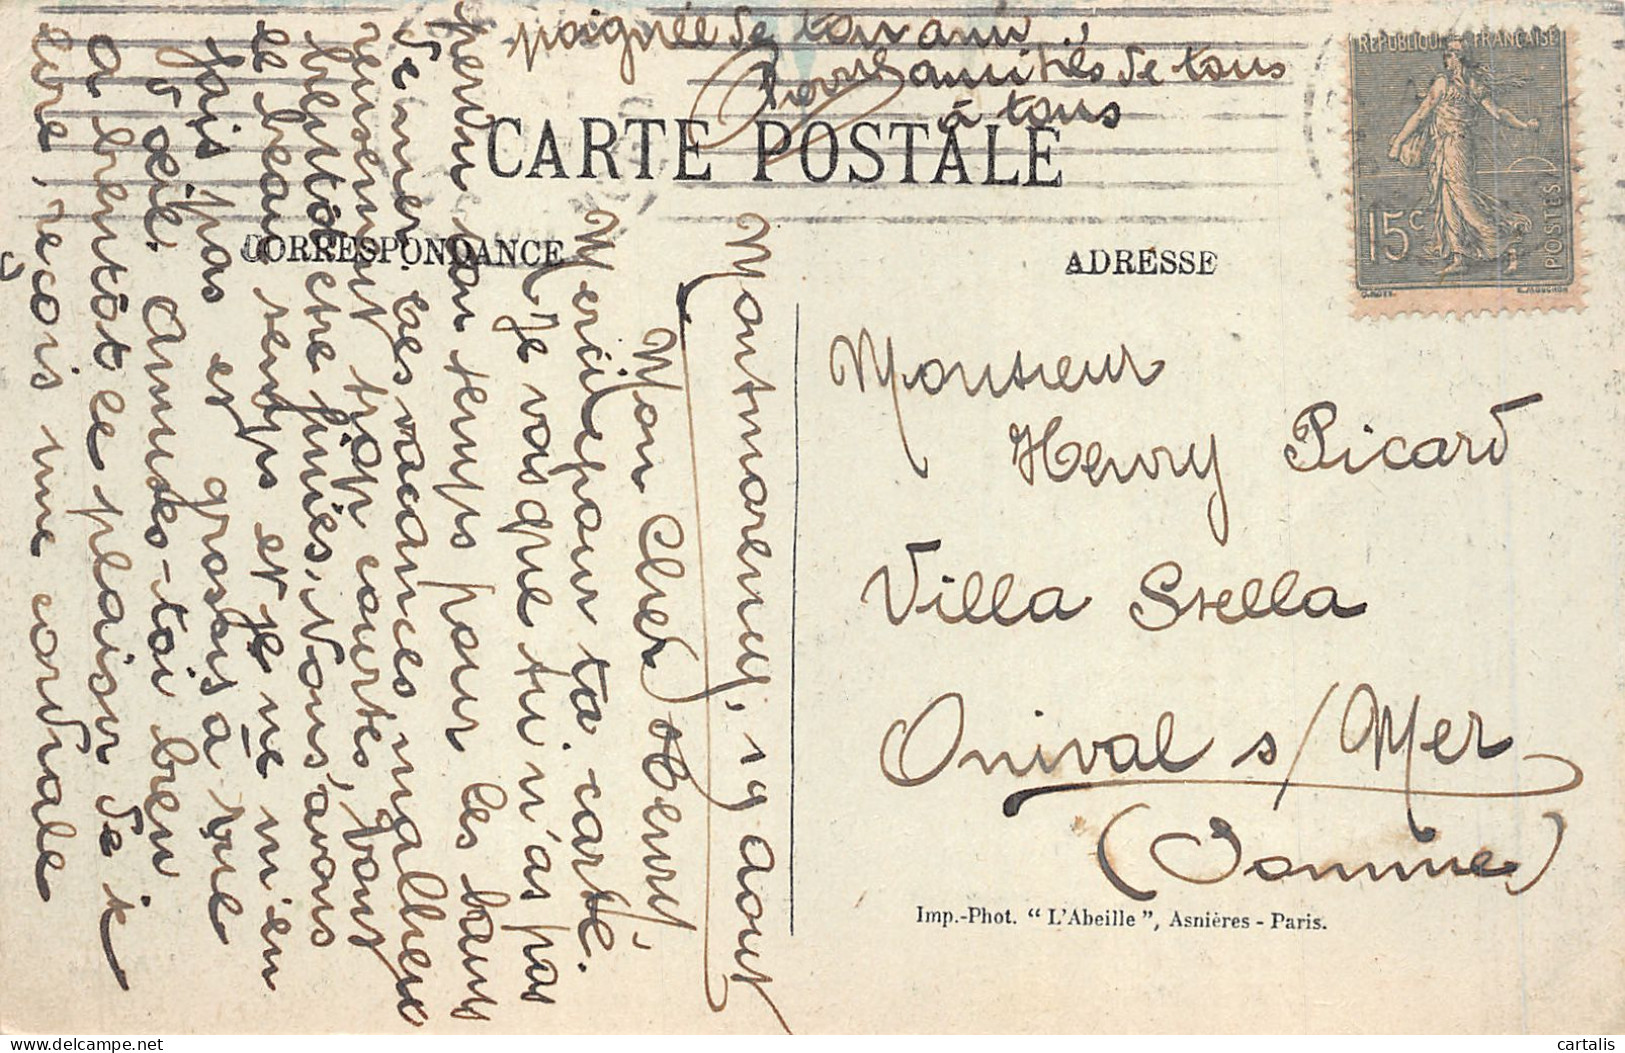 CARTE POSTALE
CORRESPONDANCE
ADRESSE
REPUBLIQUE FRANÇAISE
15c
POSTES
Montmorency, 19 aout
Mon Cher Henry,
Merci de pour ta carte.
Je vois que tu n'as pas
perdu ton temps pour les bains
de mer. Les vacances malheu
reusement trop courtes, vont
bientôt être finies. Nous avons
le beau temps et je ne m'en
fais pas et grossis à vue
d'œil. Amuses-toi bien
A bientôt le plaisir de te
lire, reçois une cordiale
poignée de ton ami
Pierre
amitiés de tous
à tous
Monsieur
Henry Picard
Villa Stella
Onival s/ Mer
(Somme)
Imp.-Phot. “L'Abeille”, Asnières - Paris.
cartalis